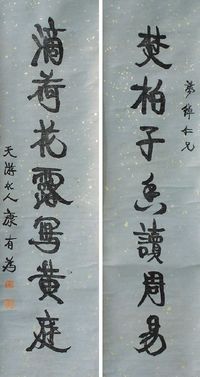 焚柏子香讀周易
仁兄
滴荷花露寫黄庭
天游化人康有為